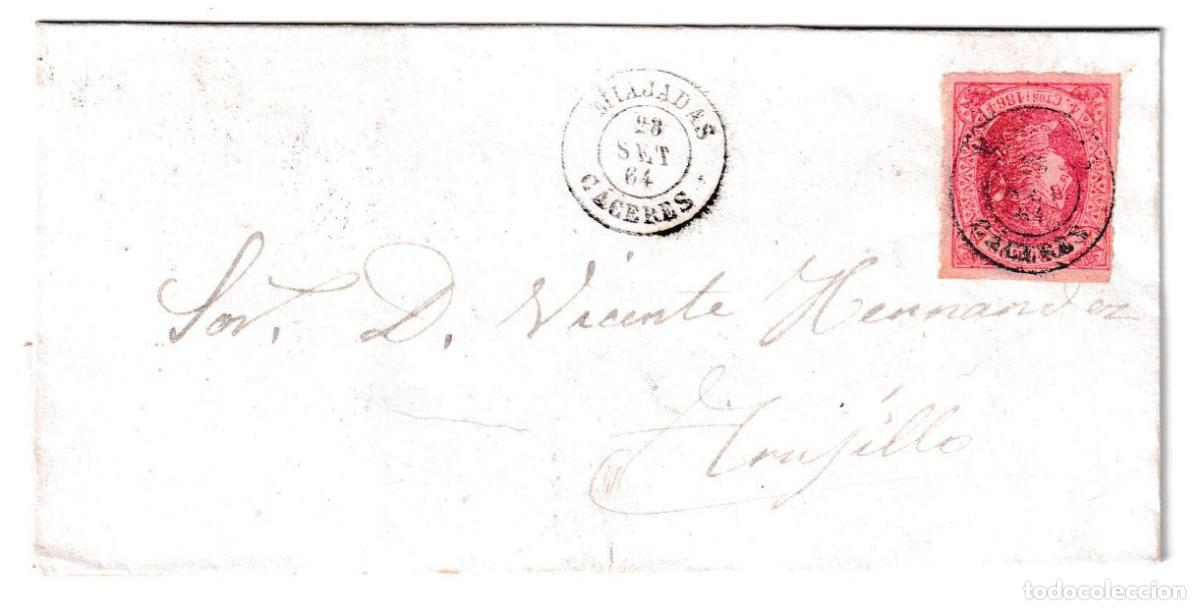 MIAJADAS
28
SET
64
CACERES
Cros 1864
CACERES
Sor. D. Vicente Hernandez
Trujillo
todocoleccion